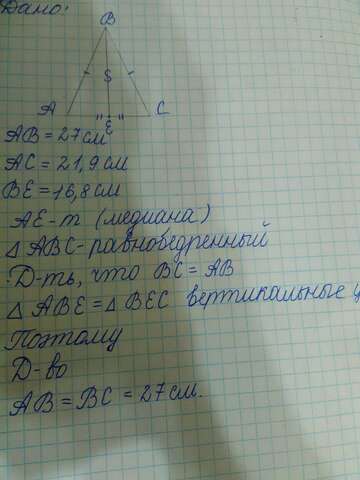 Дано:
B
S
A E C
AB = 27 см
AC = 21,9 см
BE = 16,8 см
AE - m (медиана)
△ ABC - равнобедренный
Д-ть, что BC = AB
△ ABE = △ BEC вертикальные
Поэтому
Д-во
AB = BC = 27 см.